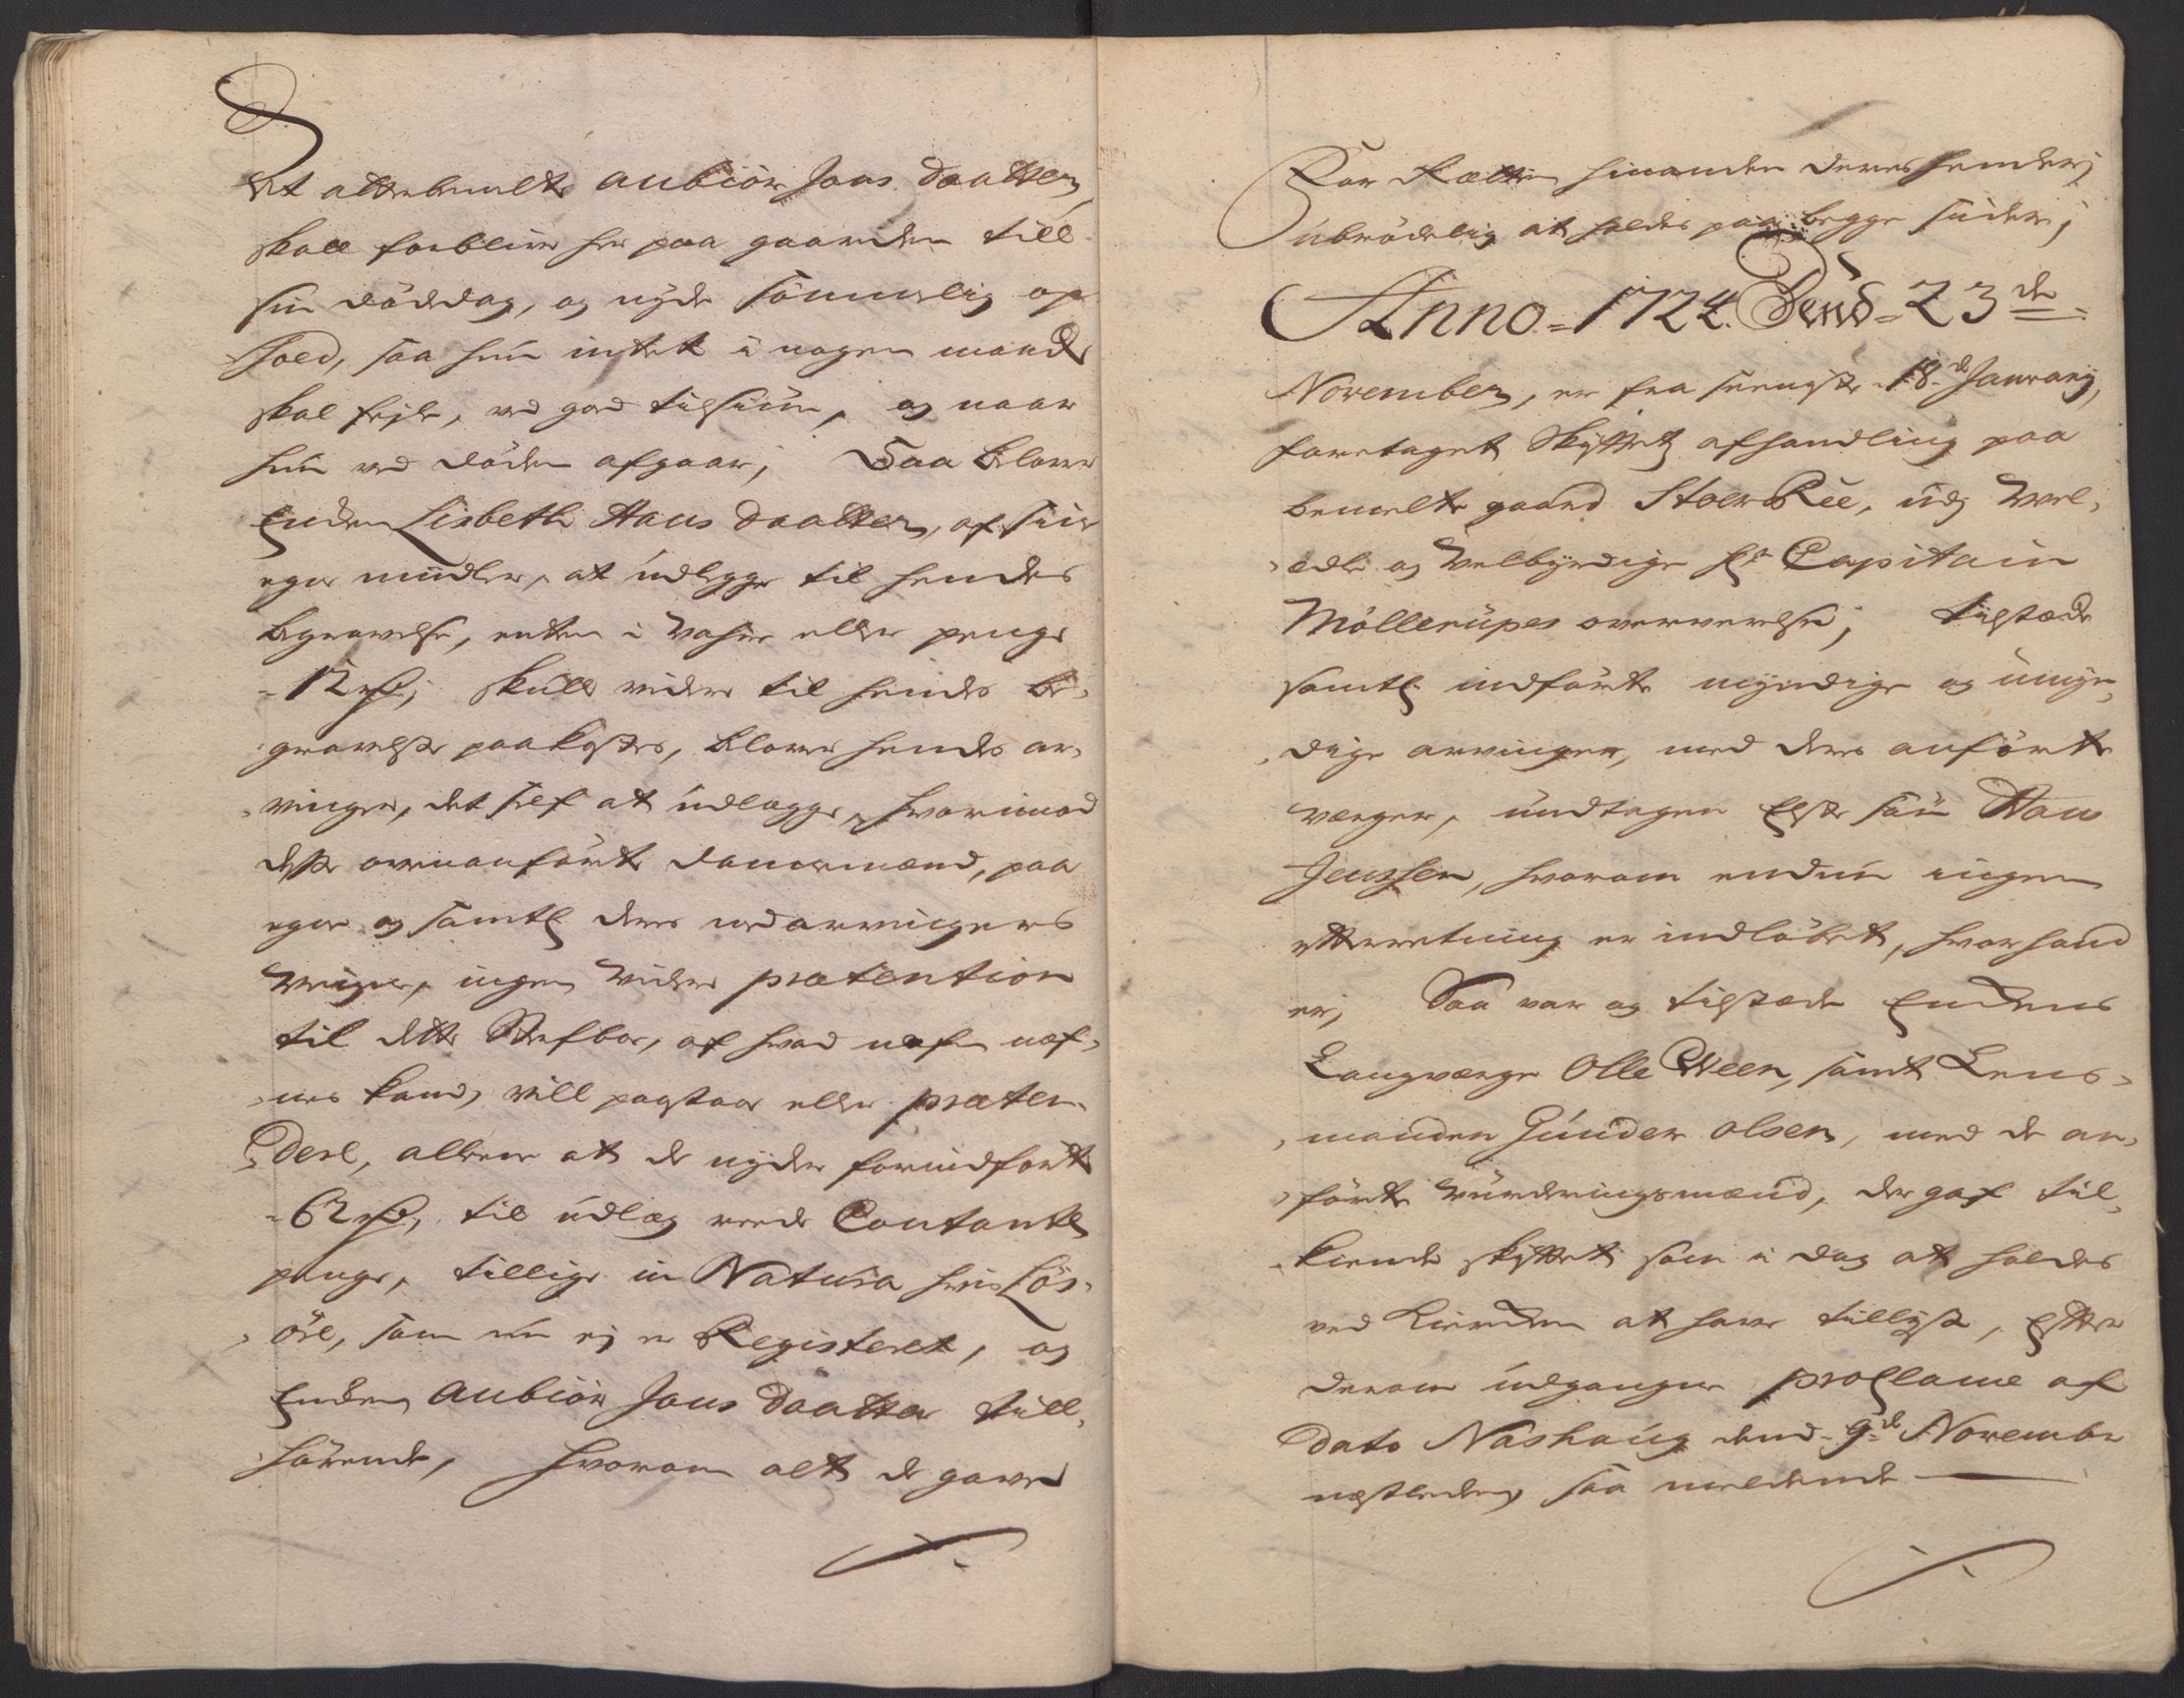 At attebemelte Aubiör Jons Daatter,
skall forblive her paa gaarden till
sin dödedag, og nyde sömmelig op-
hold, saa hun intet i nogen maade
skal fejle, ved god tilsiun, og naar
hun ved döden afgaar; Saa Lover
Enden Lisbeth Hans Daatter, af sine
egne midler, at udlegge til hendes
begravelse, enten i Vahre eller penge
=12 rd; skulle videre til hendes be,
gravelse paakostes, Lover hendes ar,
vinger, det self at udlegge, hvorimod
disse ovenanförte Dannemænd, paa
egne og samtl deres medarvingers
Veigne, ingen Videre prætention
til dette Sterfboe, af hvad nafn naf,
nes kand, vill paastaa eller præten,
dere, allene at de nyder forindfört
=62 rd, til udlæg reede Contante
penge, tillige in Natura hvis Lös,
öre, som nu ej er Registeret, og
Enden Aubiör Jons Daatter till,
hörende, hvorom alt de gaver
For Retten hinanden deres hender,
ubrödelig at holdes paa begge sider;
Anno=1724. Dend=23de
November, er fra seeneste 18de Januarij,
foretaget Skifftets afhandling paa
bemelte gaard Stoer Ree, udj Vel,
ædle og Velbyrdige Hr Capitain
Möllerupes oververelse; tilstæde
samtl indförte myndige og umyn,
dige arvinger, med deres anförte
værger, undtagen Elste sön Hans
Jenssen, hvorom endnu ingen
efterretning er indlöbet, hvor hand
er; Saa var og tilstæde Enckens
Laugværge Olle Ween, samt Lens,
manden Gunder Olsen, med de an,
förte Vurderingsmænd, der gaf til,
kiende skifftet som i dag at holdes
ved Kirken at have tillyst, Efter
derom udgangne proclame af
Dato Næshaug dend 9de Novembr
nestleden, saa meldende